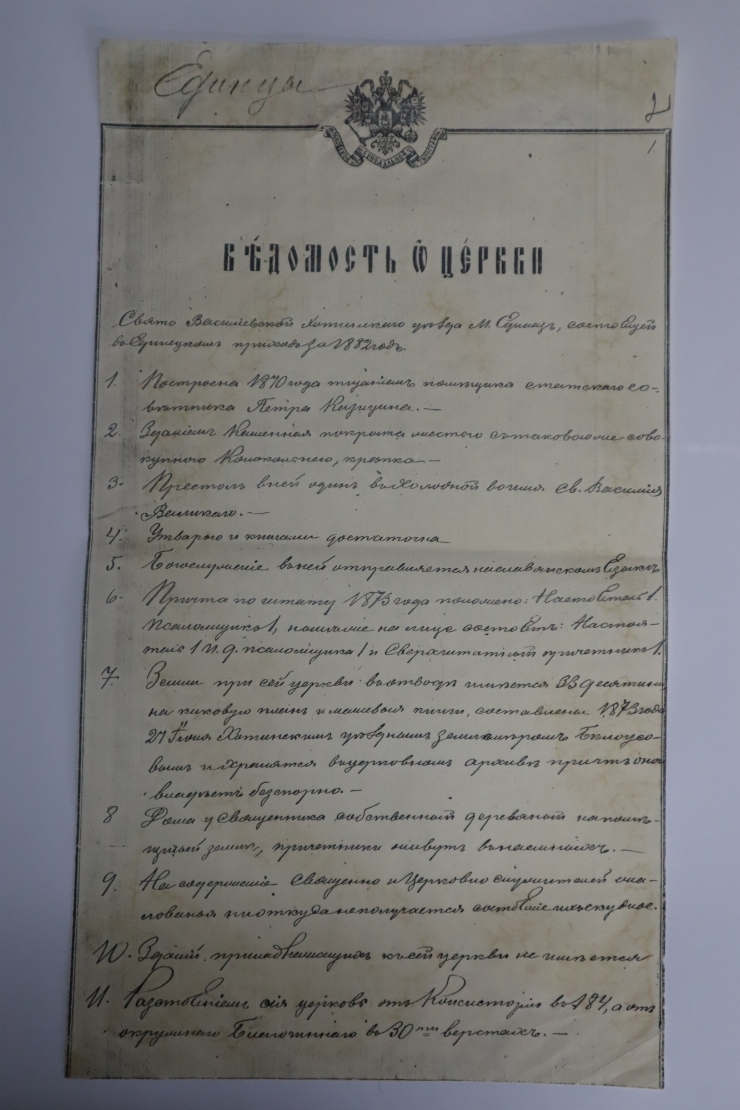 Единцы
2
1.
ВѢДОМОСТЬ Ѡ ЦЕРКВИ
Свято Василіевской Хотинскаго уѣзда М. Единецъ, состоящей
въ Единецкомъ приходѣ за 1882 годъ.
1. Построена 1870 года тщаніемъ помѣщика статскаго со-
вѣтника Петра Казимира. —
2. Зданіемъ Каменная покрыта жестью съ таковою же сово
купною Колокольнею, крѣпка —
3. Престолъ в ней одинъ въ холодной во имя Св. Василія
Великаго. —
4. Утварью и книгами достаточна
5. Богослуженіе въ ней отправляется на славянскомъ Языкѣ
6. Причта по штату 1873 года положено: Настоятель 1.
Псаломщикъ 1, на лице состоитъ: Настоя-
тель 1 И. д. псаломщика 1 и Сверхштатный причетникъ 1.
7. Земли при сей церкви въ отводѣ имѣется 33 десятины
на каковую планъ и межевыя книги, составлены 1873 года
27 Іюля Хотинскимъ уѣзднымъ землемѣромъ Бѣлоусо-
вымъ и хранятся въ церковномъ архивѣ причтъ оною
владѣетъ безспорно. —
8 Дома у Священника собственный деревяный на помѣ-
щичей землѣ, причетники живутъ въ наемныхъ. —
9. На содержаніе Священно и Церковно служителей жа-
лованья ниоткуда не получается состояніе их скудное.
10. Зданій, принадлежащихъ къ сей церкви не имѣется
11. Разстояніемъ сія церковь отъ Консисторіи въ 184, а отъ
окружнаго Благочиннаго въ 30 ти верстахъ. —